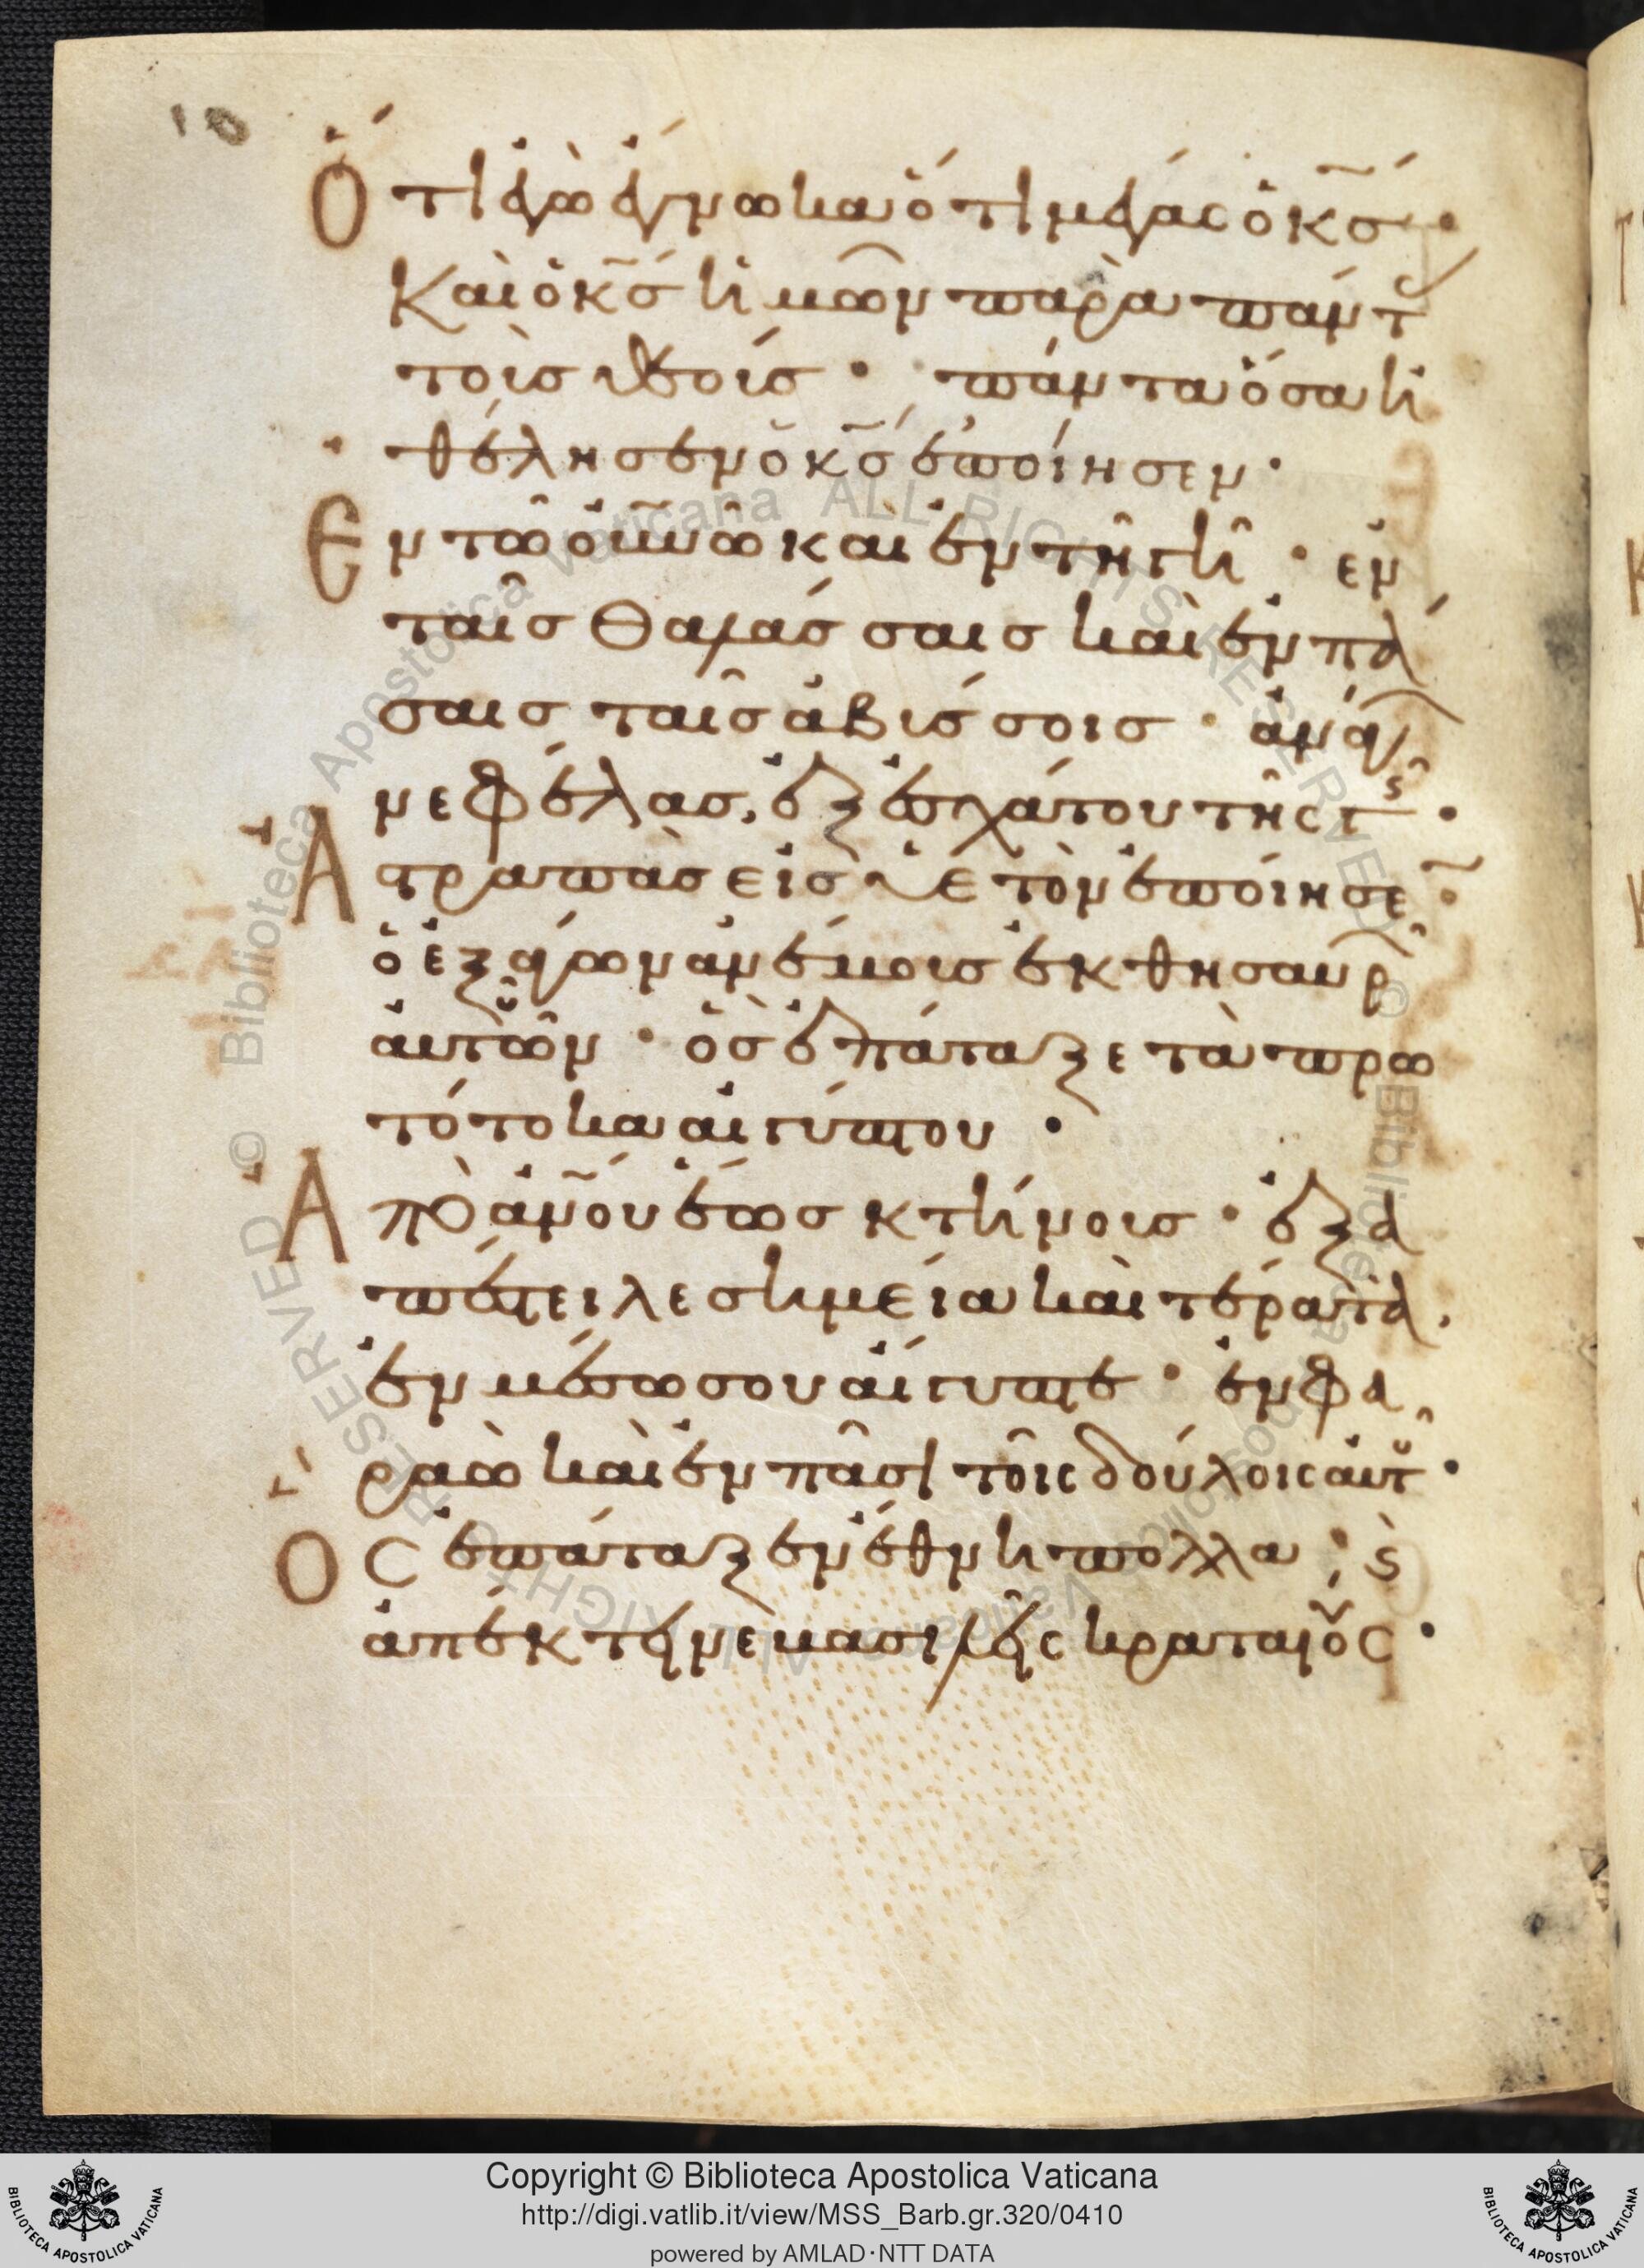 Ὅτι ἐγὼ ἔγνωκα ὅτι μέγας ὁ κς́ ·
Καὶ ὁ κς̄ ἡμῶν παρὰ πάντ
τοὶς θεοίς · πάντα ὅσα ἠ
θέλησεν ὁ κς̄ ἐποίησεν ·
Εν τῶ οὐνῶ καὶ ἐν τῆ γῆ · ἐν
ταῖς Θαλάσσαις καὶ ἐν πά
σαις ταῖς ἀβίσσοις · ἀνάγ
νεφέλας, ἐξ ἐσχάτου τῆς γῆς ·
Αστραπὰς εἰς ὑετὸν ἐποίησε ·
ὁ ἐξάγων ἀνέμοις ἐκ θησαυρ
αὐτῶν · ὃς ἐπάταξε τὰ πρω
τότοκα αἰγύπτου ·
Απὸ ἀνου ἕως κτήνοις · ἐξα
πέστειλε σημεία καὶ τέρατα,
ἐν μέσω σου αἴγυπτε · ἐν φα
ραὼ καὶ ἐν πᾶσι τοῖς δούλοις αὐτ ·
Ος ἐπάταξεν ἔθνη πολλα · ϛ̀
ἀπέκτεινε βασιλεῖς κραταιοῦς ·
Copyright © Biblioteca Apostolica Vaticana
http://digi.vatlib.it/view/MSS_Barb.gr.320/0410
powered by AMLAD·NTT DATA
BIBLIOTECA APOSTOLICA VATICANA
BIBLIOTECA APOSTOLICA VATICANA
© Biblioteca Apostolica Vaticana ALL RIGHTS RESERVED
© Biblioteca Apostolica Vaticana ALL RIGHTS RESERVED